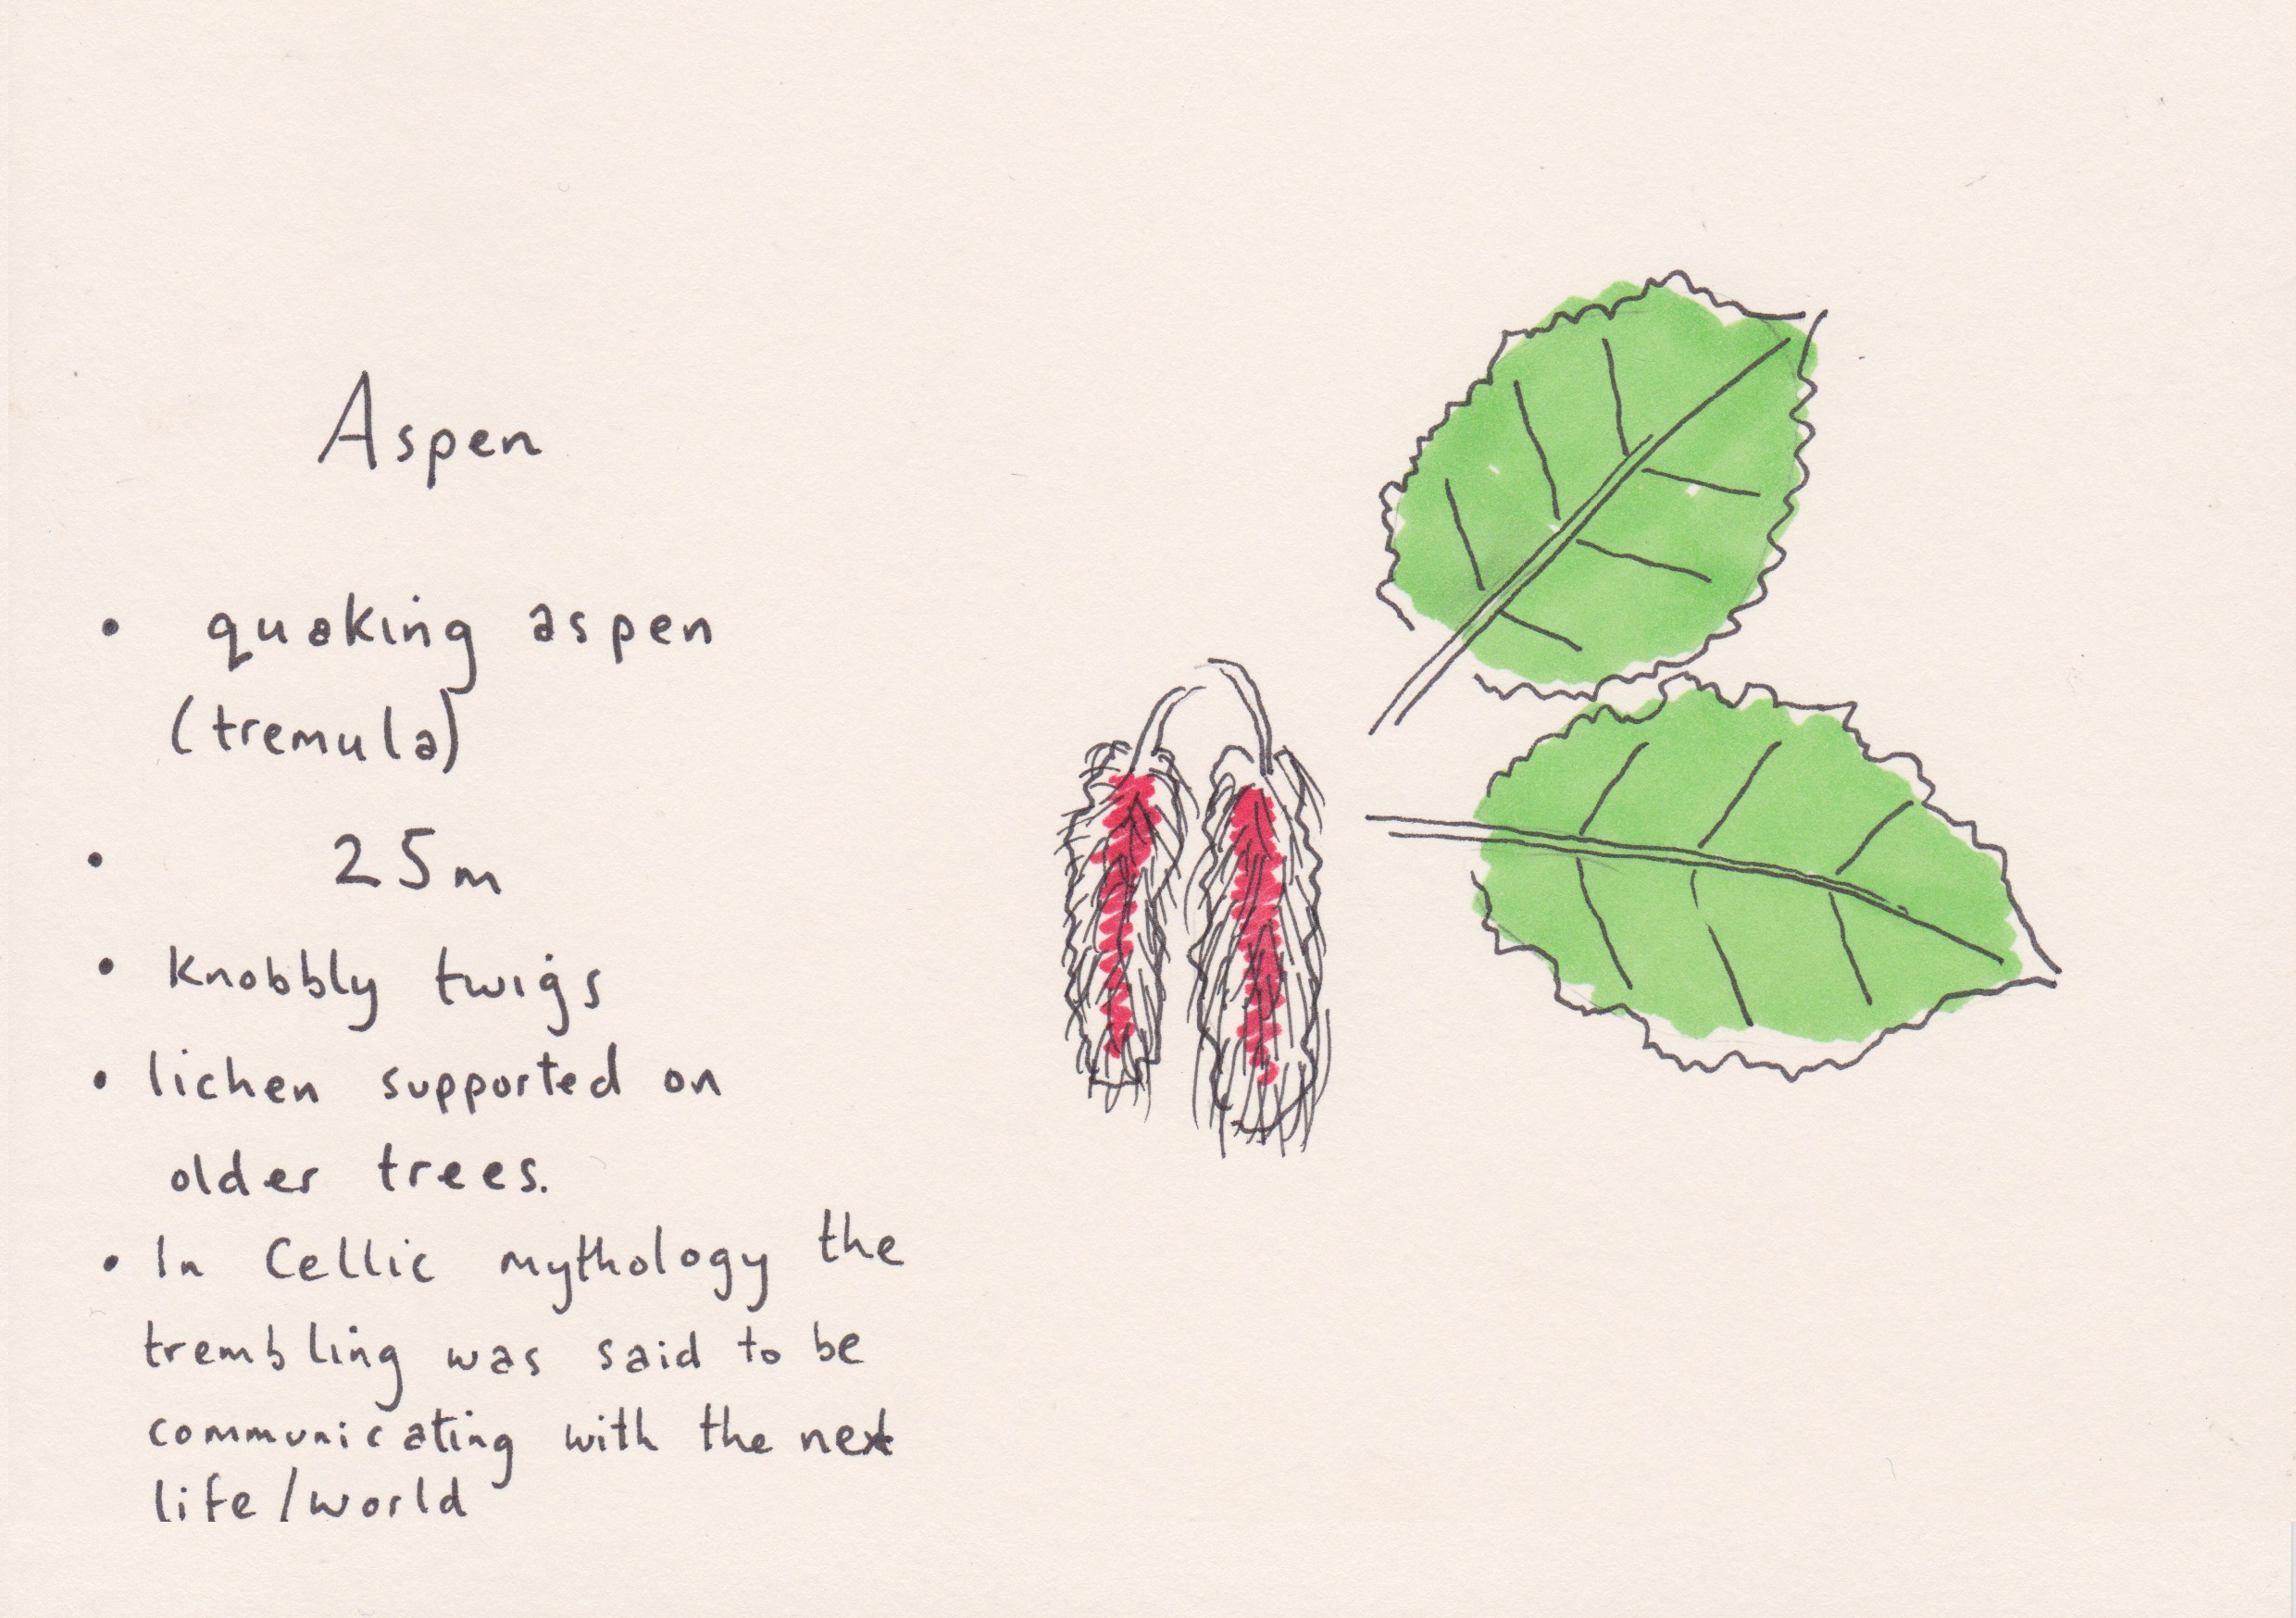 Aspen
• quaking aspen
(tremula)
• 25m
• Knobbly twigs
• lichen supported on
older trees.
• In Cellic mythology the
trembling was said to be
communicating with the next
life/world